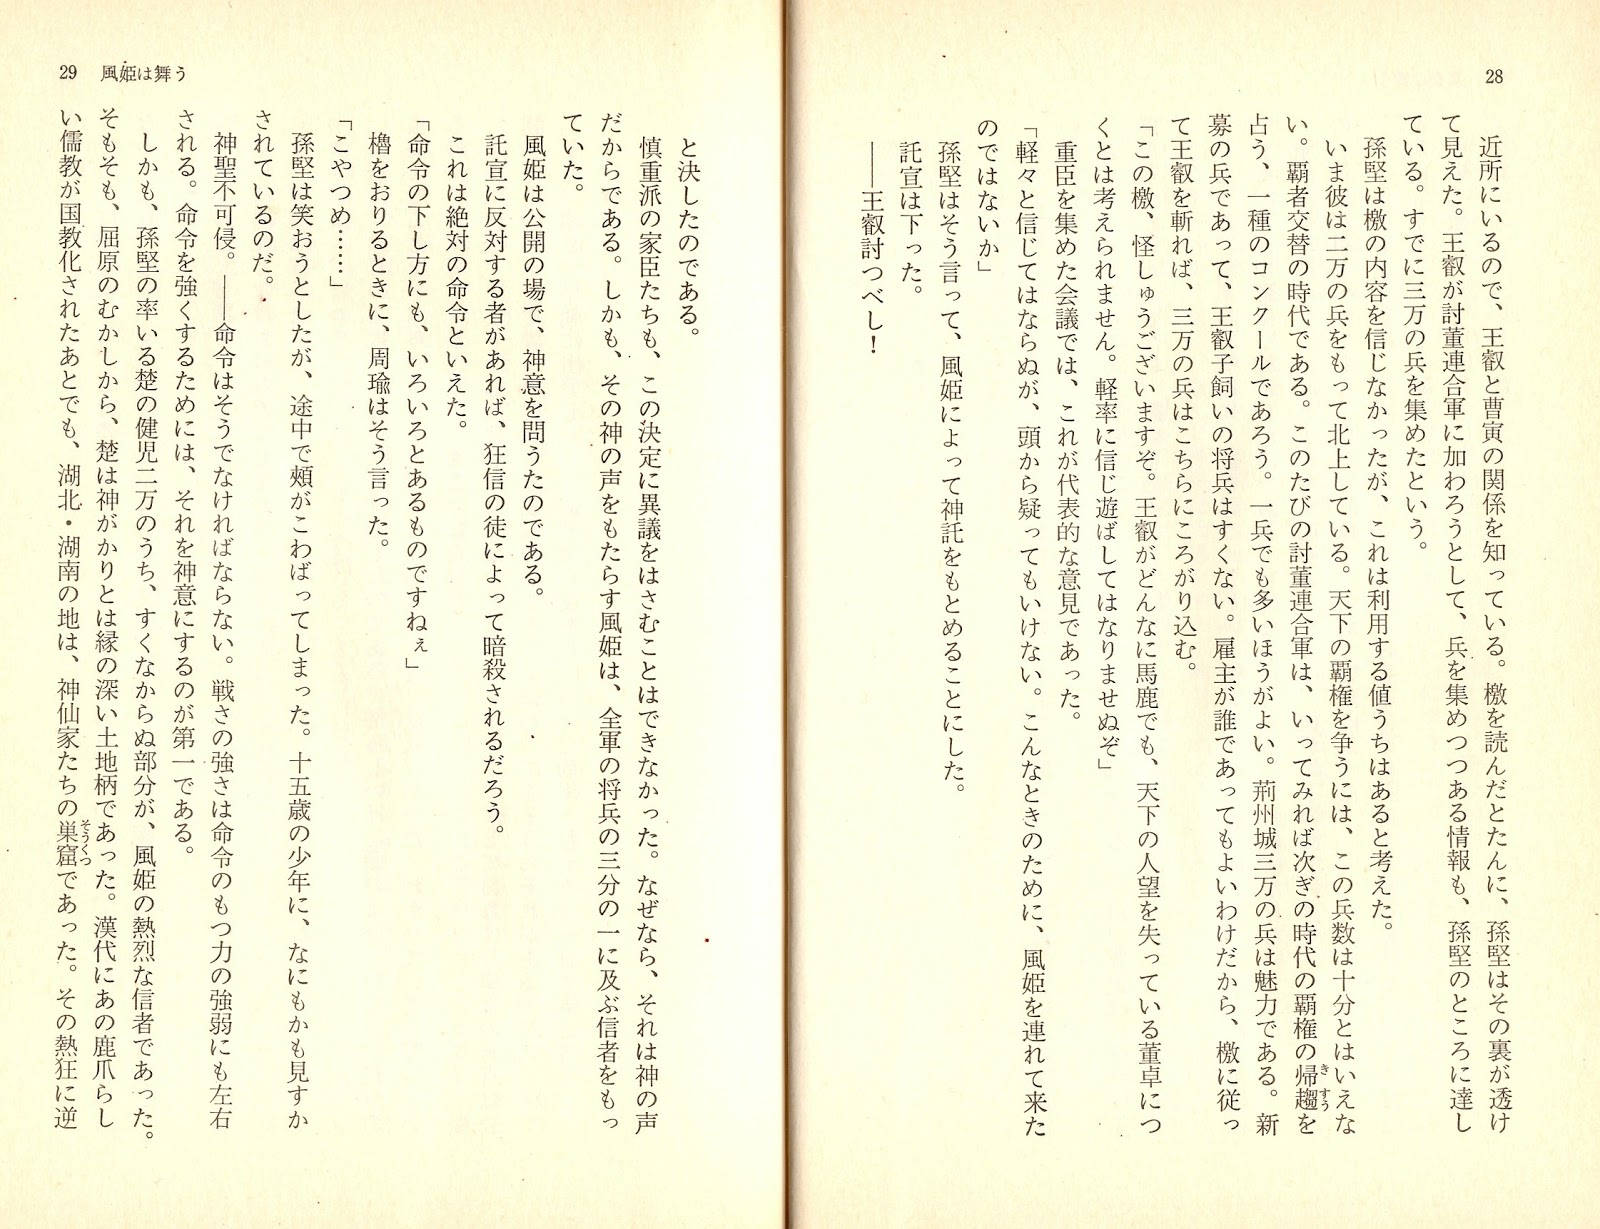 28
近所にいるので、王叡と曹寅の関係を知っている。檄を読んだとたんに、孫堅はその裏が透け
て見えた。王叡が討董連合軍に加わろうとして、兵を集めつつある情報も、孫堅のところに達し
ている。すでに三万の兵を集めたという。
孫堅は檄の内容を信じなかったが、これは利用する値うちはあると考えた。
いま彼は二万の兵をもって北上している。天下の覇権を争うには、この兵数は十分とはいえな
い。覇者交替の時代である。このたびの討董連合軍は、いってみれば次ぎの時代の覇権の帰趨きすうを
占う、一種のコンクールであろう。一兵でも多いほうがよい。荊州城三万の兵は魅力である。新
募の兵であって、王叡子飼いの将兵はすくない。雇主が誰であってもよいわけだから、檄に従っ
て王叡を斬れば、三万の兵はこちらにころがり込む。
「この檄、怪しゅうございますぞ。王叡がどんなに馬鹿でも、天下の人望を失っている董卓につ
くとは考えられません。軽率に信じ遊ばしてはなりませぬぞ」
重臣を集めた会議では、これが代表的な意見であった。
「軽々と信じてはならぬが、頭から疑ってもいけない。こんなときのために、風姫を連れて来た
のではないか」
孫堅はそう言って、風姫によって神託をもとめることにした。
託宣は下った。
――王叡討つべし！
29 風姫は舞う
と決したのである。
慎重派の家臣たちも、この決定に異議をはさむことはできなかった。なぜなら、それは神の声
だからである。しかも、その神の声をもたらす風姫は、全軍の将兵の三分の一に及ぶ信者をもっ
ていた。
風姫は公開の場で、神意を問うたのである。
託宣に反対する者があれば、狂信の徒によって暗殺されるだろう。
これは絶対の命令といえた。
「命令の下し方にも、いろいろとあるものですねぇ」
櫓をおりるときに、周瑜はそう言った。
「こやつめ……」
孫堅は笑おうとしたが、途中で頬がこわばってしまった。十五歳の少年に、なにもかも見すか
されているのだ。
神聖不可侵。――命令はそうでなければならない。戦さの強さは命令のもつ力の強弱にも左右
される。命令を強くするためには、それを神意にするのが第一である。
しかも、孫堅の率いる楚の健児二万のうち、すくなからぬ部分が、風姫の熱烈な信者であった。
そもそも、屈原のむかしから、楚は神がかりとは縁の深い土地柄であった。漢代にあの鹿爪らし
い儒教が国教化されたあとでも、湖北・湖南の地は、神仙家たちの巣窟そうくつであった。その熱狂に逆